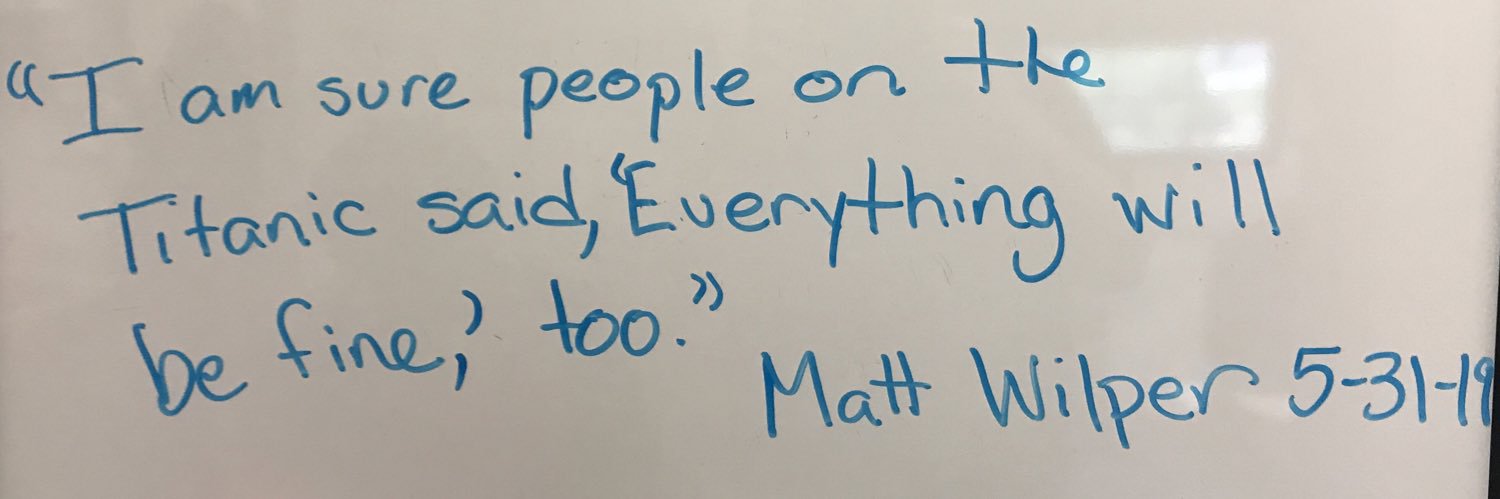 “I am sure people on the
Titanic said, ‘Everything will
be fine,’ too.”
Matt Wilper 5-31-19